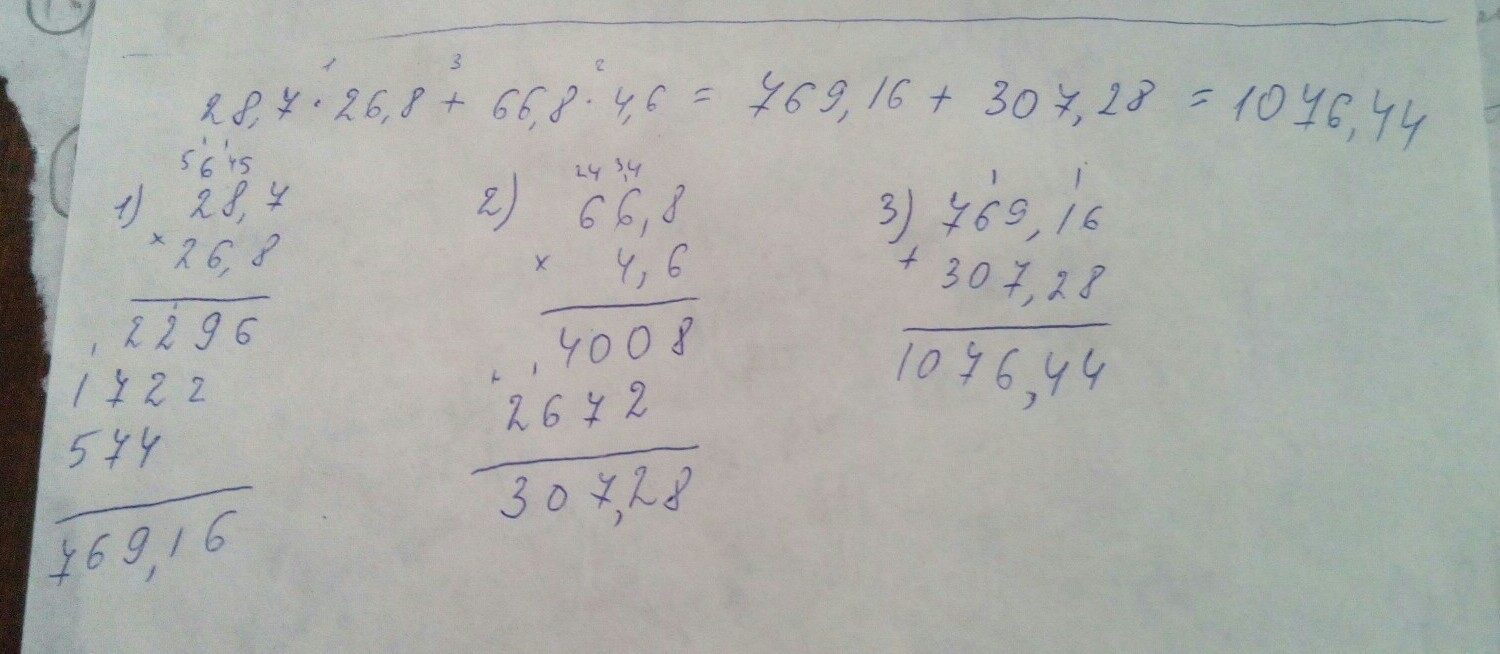 28,7 · 26,8 + 66,8 · 4,6 = 769,16 + 307,28 = 1076,44
1) 28,7
× 26,8
2296
1722
574
769,16
2) 66,8
× 4,6
4008
2672
307,28
3) 769,16
+ 307,28
1076,44